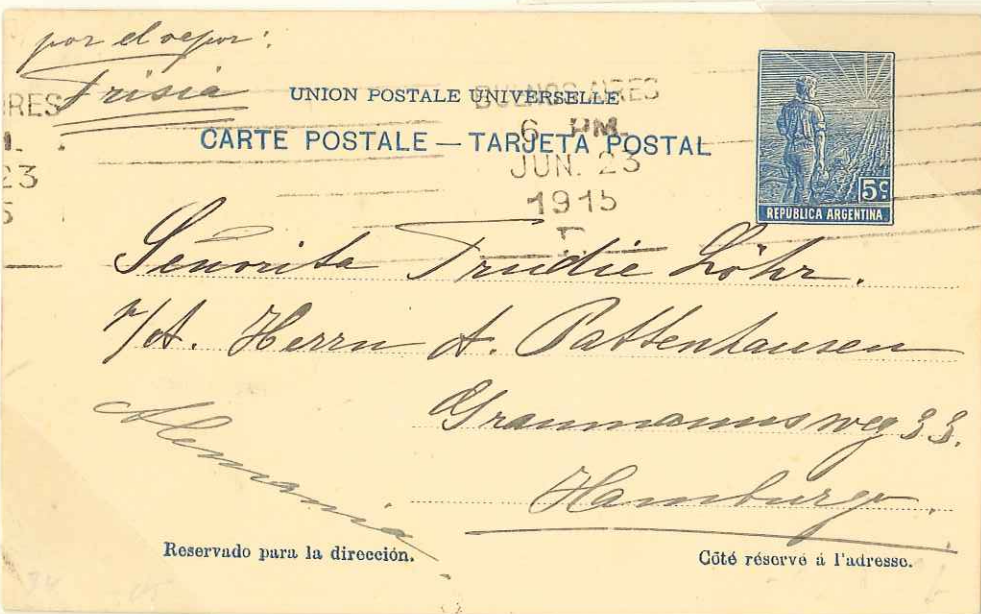 por el vapor:
Frisia
UNION POSTALE UNIVERSELLE
CARTE POSTALE — TARJETA POSTAL
BUENOS AIRES
6 PM.
JUN. 23
1915
RES
M.
23
5
5c.
REPÚBLICA ARGENTINA
Señorita Trudie Löhr.
p/A. Herrn A. Pattenhausen
Graumannsweg 33.
Hamburgo.
Alemania
Reservado para la dirección.
Côté réservé à l'adresse.